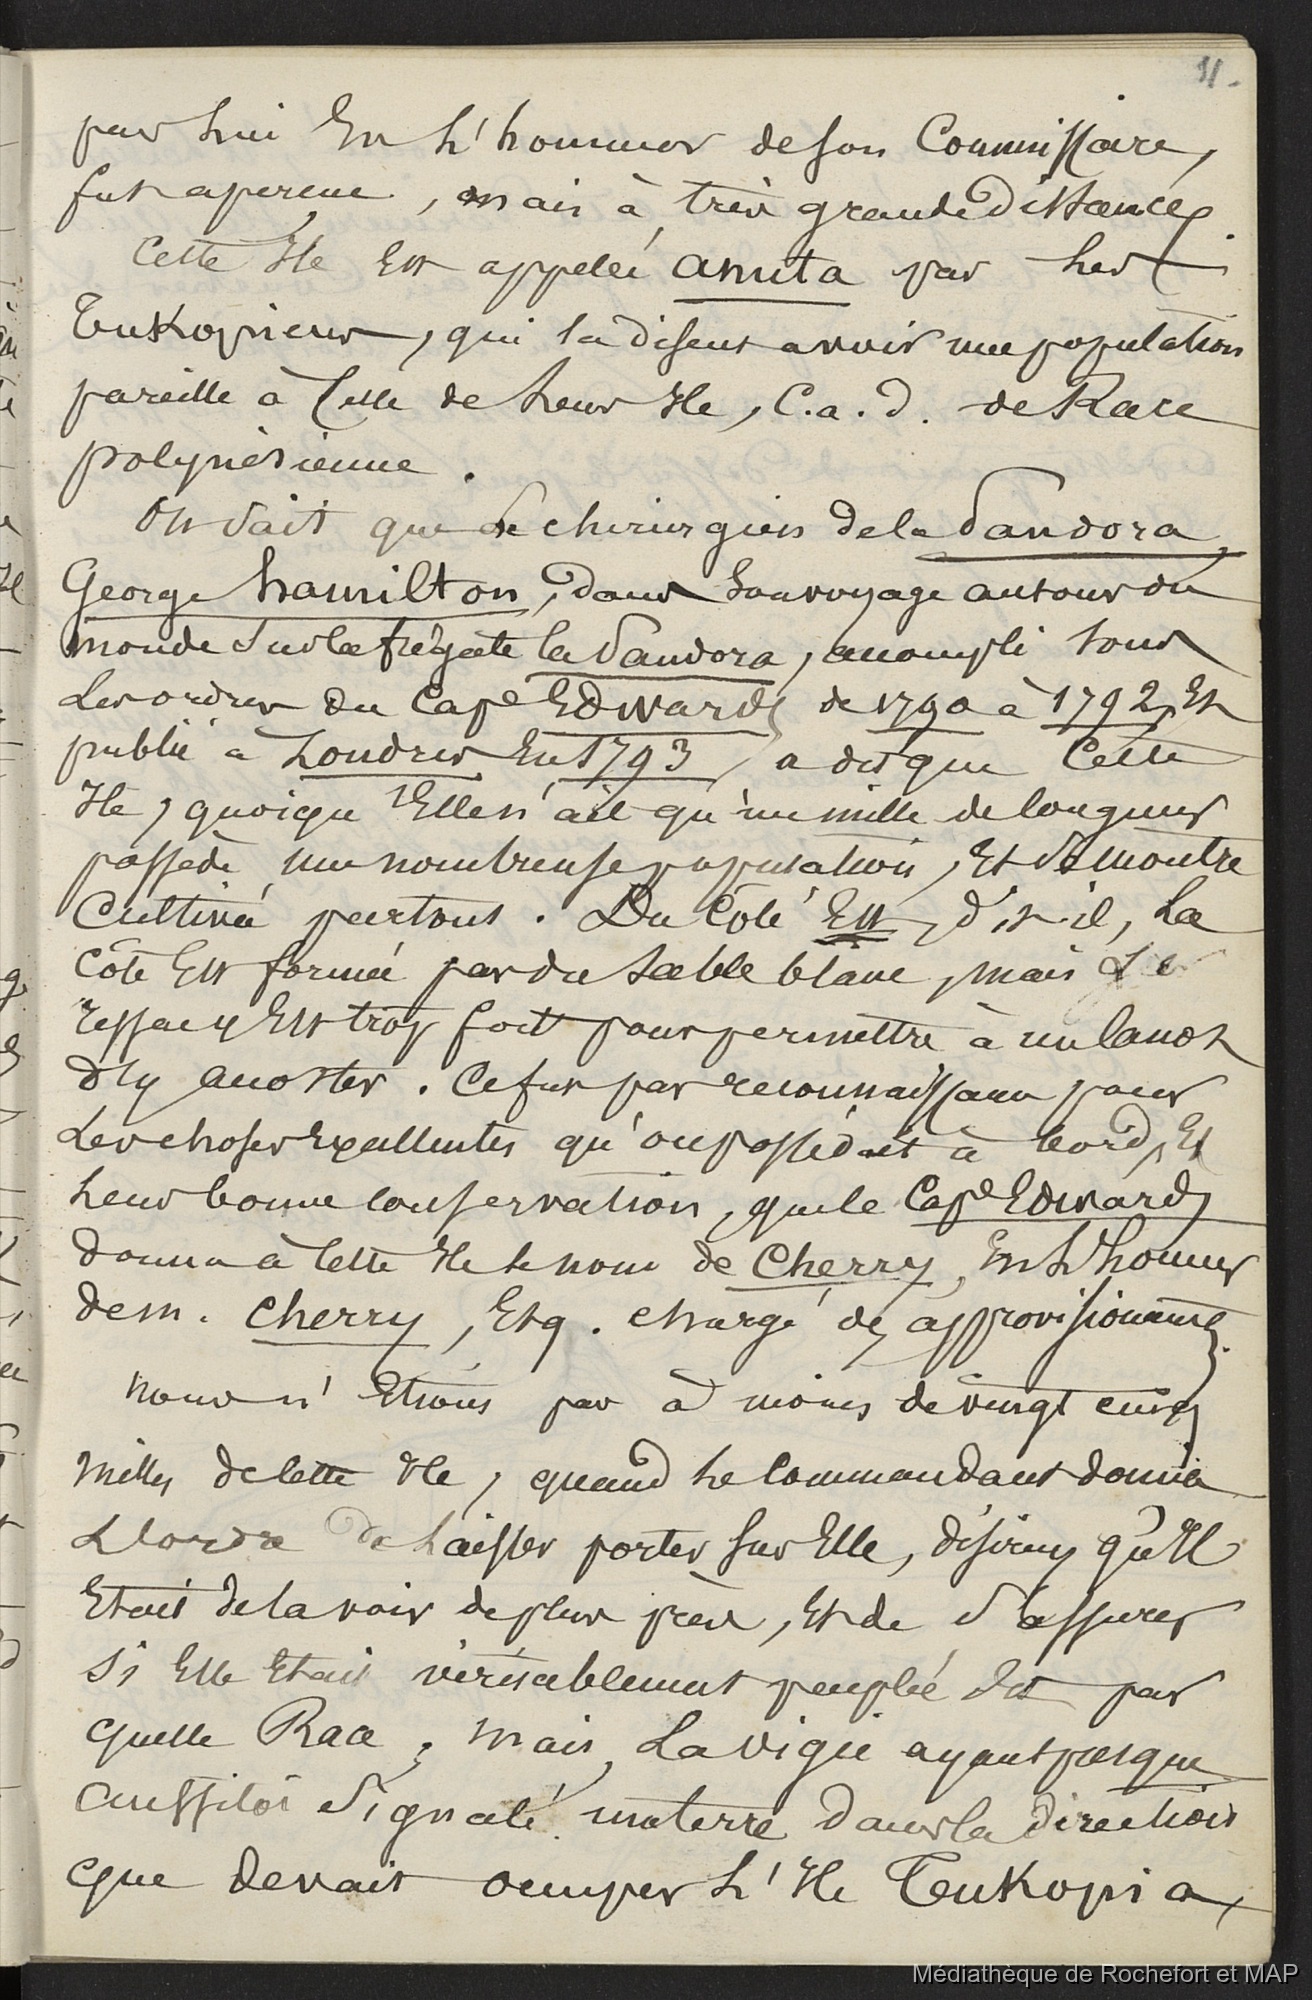 11.
par lui En L'honneur de son Commissaire,
fut aperçue, mais à très grande distance.
Cette Ile Est appelée anuta par Les
Tukopiens, qui la disent avoir une population
pareille à Celle de Leur Ile, C.a.d. de Race
polynésienne.
On sait que Le chirurgien de la Pandora,
George hamilton, dans Son voyage autour du
monde sur la frégate la Pandora, accompli sous
Les ordres du Cape Edwards de 1790 à 1792, Et
publié à Londres En 1793, a dit que Cette
Ile, quoiqu'Elle n'ait qu'un mille de longueur
possède une nombreuse population, Et se montre
Cultivée partout. Du Côté Est, dit-il, La
Côte Est formée par du sable blanc, mais Le
ressac y Est trop fort pour permettre à un Canot
d'y accoster. Ce fut par reconnaissance pour
Les choses Excellentes qu'on possédait à bord, Et
Leur bonne conservation, que le Cape Edwards
donna à Cette Ile le nom de Cherry, En L'honneur
de m. Cherry, Esq. chargé des approvisionnements.
Nous n'Etions pas à moins de vingt cinq
milles de Cette Ile, quand Le Commandant donna
L'ordre de Laisser porter sur Elle, désireux qu'Il
Etait de la voir de plus près, Et de s'assurer
si Elle Etait véritablement peuplée Et par
quelle Race; Mais, La vigie ayant presque
aussitôt signalé une terre dans la direction
que devait occuper L'Ile Tukopia,
Médiathèque de Rochefort et MAP